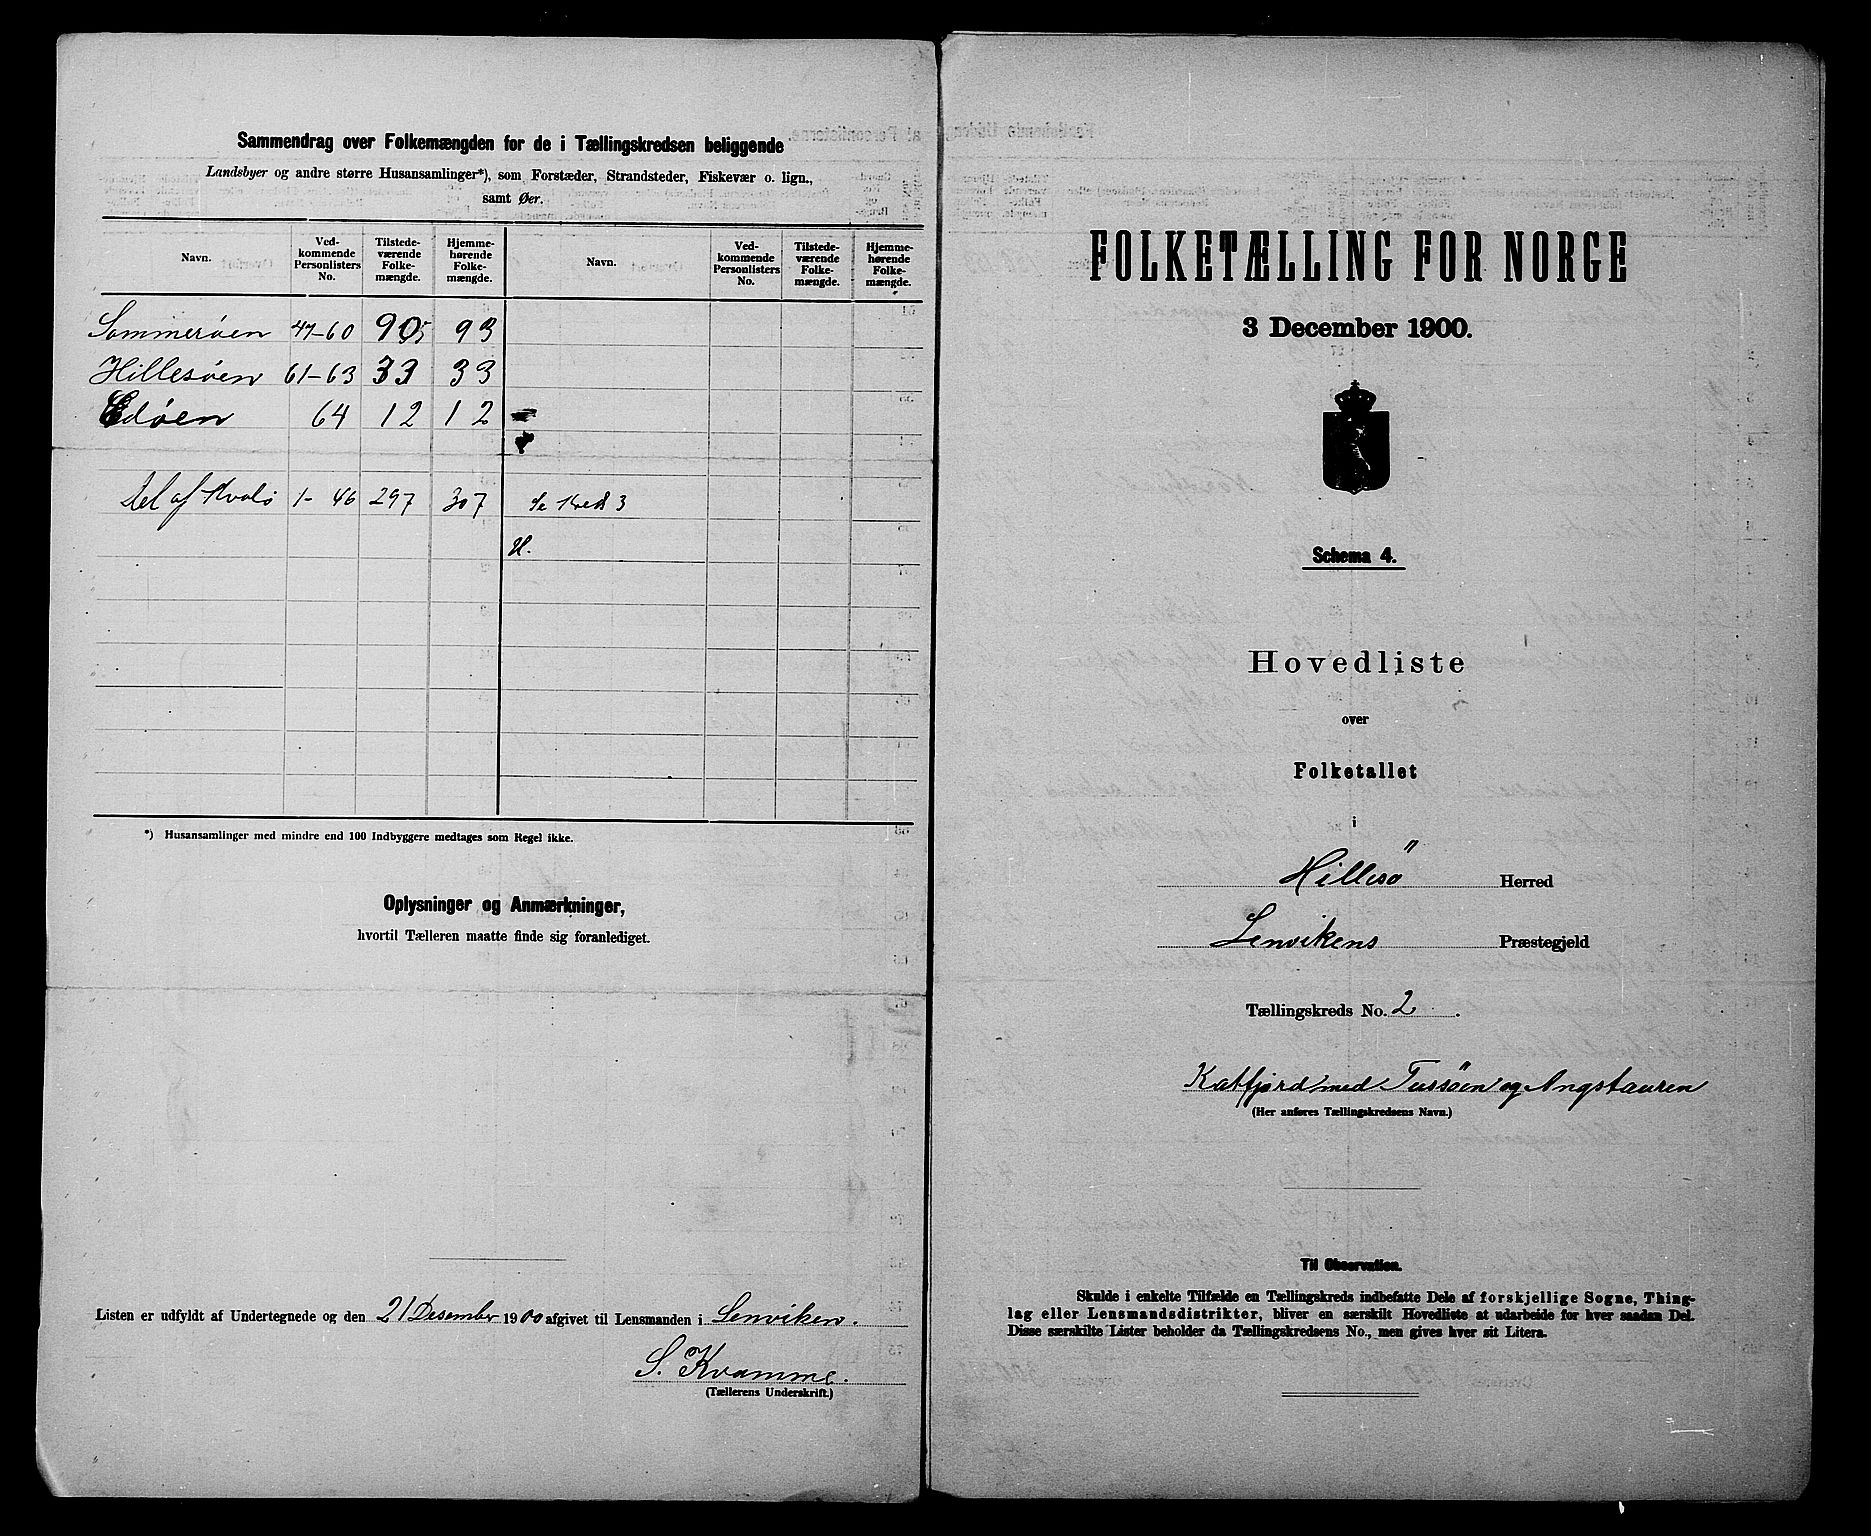 Sammendrag over Folkemængden for de i Tællingskredsen beliggende
Landsbyer og andre større Husansamlinger*), som Forstæder, Strandsteder, Fiskevær o. lign.,
samt Øer.
Navn. Ved-kommende Personlisters No. Tilstede-værende Folke-mængde. Hjemme-hørende Folke-mængde. Navn. Ved-kommende Personlisters No. Tilstede-værende Folke-mængde. Hjemme-hørende Folke-mængde.
Sommerøen 47-60 905 93
Hillesøen 61-63 33 33
Edøen 64 12 12
Del af Kvalø 1-46 297 307 Se Kred 3
H.
*) Husansamlinger med mindre end 100 Indbyggere medtages som Regel ikke.
Oplysninger og Anmærkninger,
hvortil Tælleren maatte finde sig foranlediget.
Listen er udfyldt af Undertegnede og den 21 Desember 1900 afgivet til Lensmanden i Lenviken.
S. Kvamme.
(Tællerens Underskrift.)
FOLKETÆLLING FOR NORGE
3 December 1900.
Schema 4.
Hovedliste
over
Folketallet
i
Hillesö Herred
Lenvikens Præstegjeld
Tællingskreds No. 2.
Katfjord med Tussøen og Angstauren
(Her anføres Tællingskredsens Navn.)
Til Observation.
Skulde i enkelte Tilfælde en Tællingskreds indbefatte Dele af forskjellige Sogne, Thing-
lag eller Lensmandsdistrikter, bliver en særskilt Hovedliste at udarbeide for hver saadan Del.
Disse særskilte Lister beholder da Tællingskredsens No., men gives hver sit Litera.